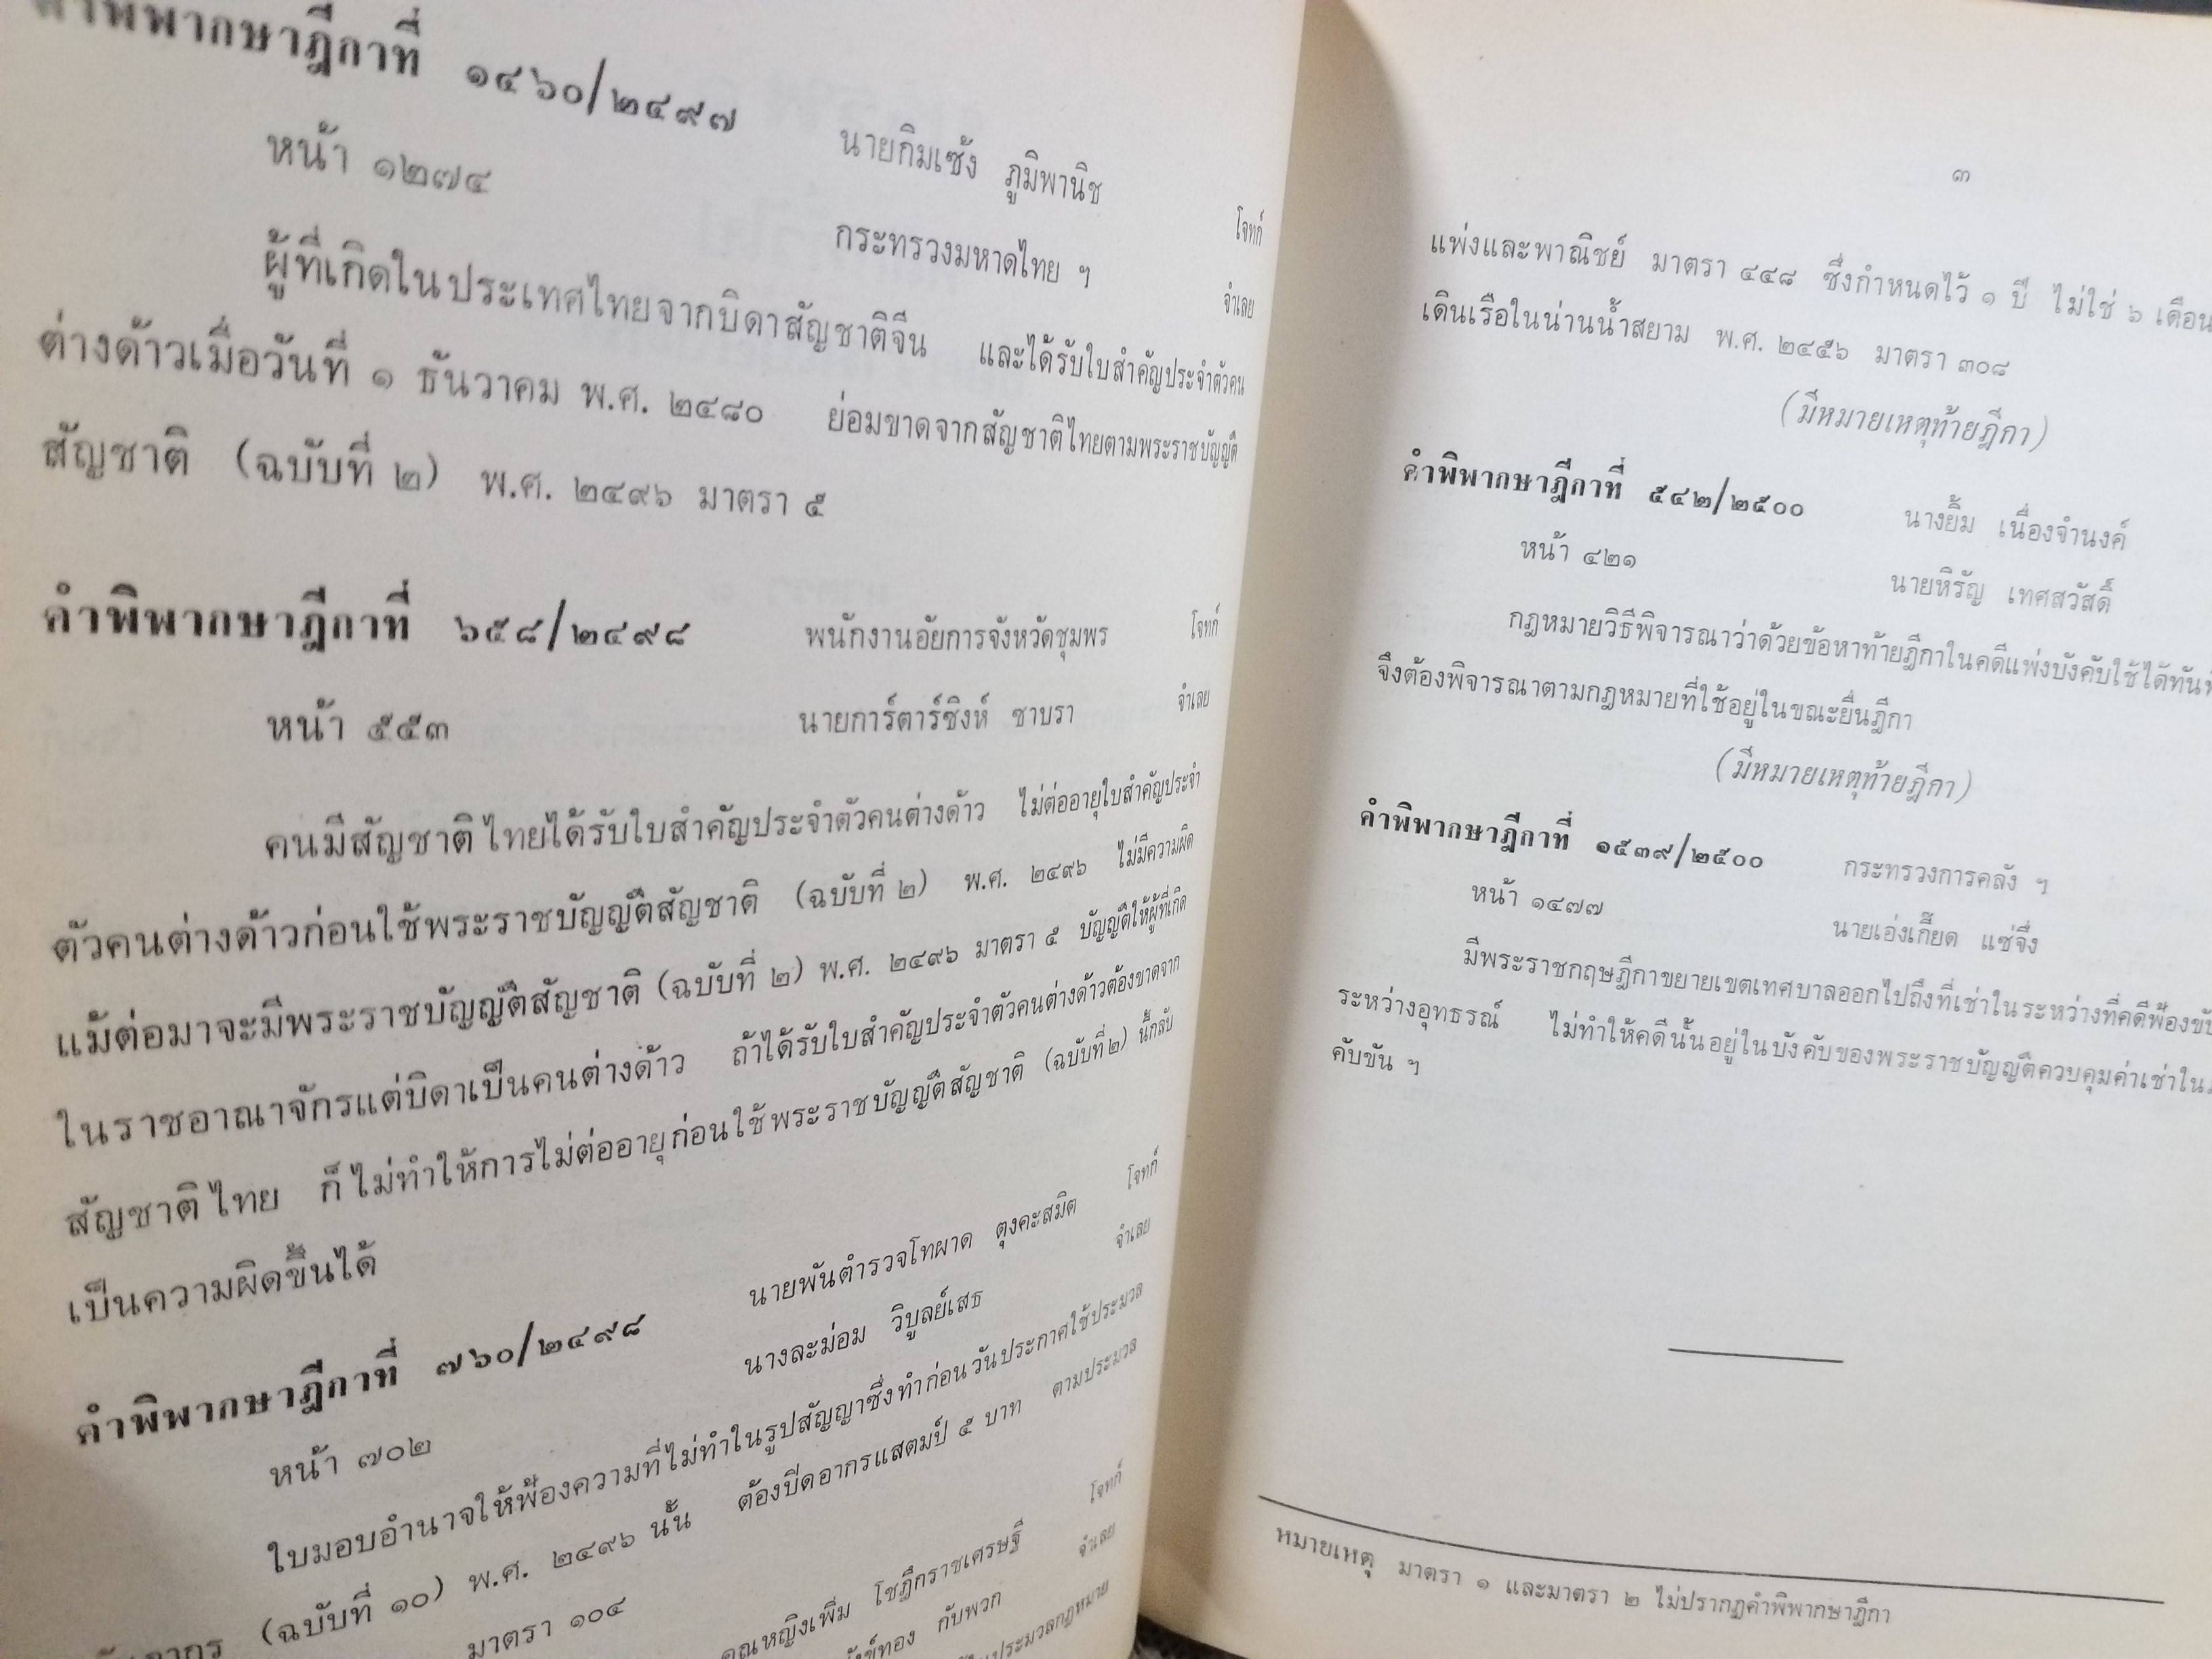 คำพิพากษาฎีกาที่ ๑๔๖๐/๒๔๙๗ นายกิมเซ้ง ภูมิพานิช โจทก์
หน้า ๑๒๗๔ กระทรวงมหาดไทย ฯ จำเลย
ผู้ที่เกิดในประเทศไทยจากบิดาสัญชาติจีน และได้รับใบสำคัญประจำตัวคน
ต่างด้าวเมื่อวันที่ ๑ ธันวาคม พ.ศ. ๒๔๘๐ ย่อมขาดจากสัญชาติไทยตามพระราชบัญญัติ
สัญชาติ (ฉบับที่ ๒) พ.ศ. ๒๔๙๖ มาตรา ๕
คำพิพากษาฎีกาที่ ๖๕๘/๒๔๙๘ พนักงานอัยการจังหวัดชุมพร โจทก์
หน้า ๕๕๓ นายการ์ตาร์ซิงห์ ซาบรา จำเลย
คนมีสัญชาติไทยได้รับใบสำคัญประจำตัวคนต่างด้าว ไม่ต่ออายุใบสำคัญประจำ
ตัวคนต่างด้าวก่อนใช้พระราชบัญญัติสัญชาติ (ฉบับที่ ๒) พ.ศ. ๒๔๙๖ ไม่มีความผิด
แม้ต่อมาจะมีพระราชบัญญัติสัญชาติ (ฉบับที่ ๒) พ.ศ. ๒๔๙๖ มาตรา ๕ บัญญัติให้ผู้ที่เกิด
ในราชอาณาจักรแต่บิดาเป็นคนต่างด้าว ถ้าได้รับใบสำคัญประจำตัวคนต่างด้าวต้องขาดจาก
สัญชาติไทย ก็ไม่ทำให้การไม่ต่ออายุก่อนใช้พระราชบัญญัติสัญชาติ (ฉบับที่ ๒) นี้กลับ
เป็นความผิดขึ้นได้
คำพิพากษาฎีกาที่ ๗๖๐/๒๔๙๘ นายพันตำรวจโทผาด ตุงคะสมิต โจทก์
หน้า ๗๐๒ นางละม่อม วิบูลย์เสธ จำเลย
ใบมอบอำนาจให้ฟ้องความที่ไม่ทำในรูปสัญญาซึ่งทำก่อนวันประกาศใช้ประมวล
(ฉบับที่ ๑๐) พ.ศ. ๒๔๙๖ นั้น ต้องปิดอากรแสตมป์ ๕ บาท ตามประมวล
มาตรา ๑๐๔
คุณหญิงเพิ่ม โชฎึกราชเศรษฐี โจทก์
กับพวก จำเลย
ประมวลกฎหมาย
๓
แพ่งและพาณิชย์ มาตรา ๔๔๘ ซึ่งกำหนดไว้ ๑ ปี ไม่ใช่ ๖ เดือน
เดินเรือในน่านน้ำสยาม พ.ศ. ๒๔๕๖ มาตรา ๓๐๘
(มีหมายเหตุท้ายฎีกา)
คำพิพากษาฎีกาที่ ๕๔๒/๒๕๐๐ นางยิ้ม เนื่องจำนงค์
หน้า ๔๒๑ นายหิรัญ เทศสวัสดิ์
กฎหมายวิธีพิจารณาว่าด้วยข้อหาท้ายฎีกาในคดีแพ่งบังคับใช้ได้ทันที
จึงต้องพิจารณาตามกฎหมายที่ใช้อยู่ในขณะยื่นฎีกา
(มีหมายเหตุท้ายฎีกา)
คำพิพากษาฎีกาที่ ๑๕๓๙/๒๕๐๐ กระทรวงการคลัง ฯ
หน้า ๑๔๗๗ นายเอ่งเกี๊ยด แซ่จึง
มีพระราชกฤษฎีกาขยายเขตเทศบาลออกไปถึงที่เช่าในระหว่างที่คดีฟ้องขับ
ระหว่างอุทธรณ์ ไม่ทำให้คดีนั้นอยู่ในบังคับของพระราชบัญญัติควบคุมค่าเช่าใน
คับขัน ฯ
หมายเหตุ มาตรา ๑ และมาตรา ๒ ไม่ปรากฏคำพิพากษาฎีกา